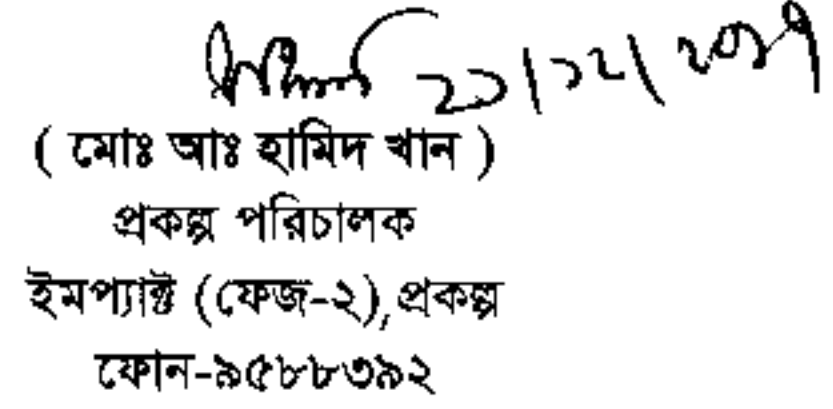 ২১/১২/২০১৭
( মোঃ আঃ হামিদ খান )
প্রকল্প পরিচালক
ইমপ্যাক্ট (ফেজ-২), প্রকল্প
ফোন-৯৫৮৮৩৯২